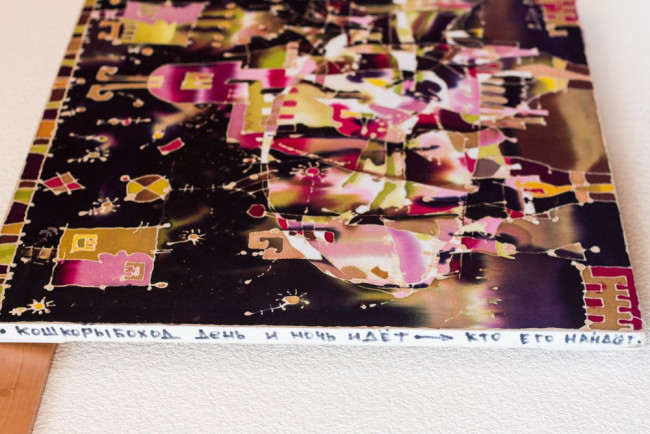 • КОШКОРЫБОХОД ДЕНЬ И НОЧЬ ИДЁТ → КТО ЕГО НАЙДЕТ.